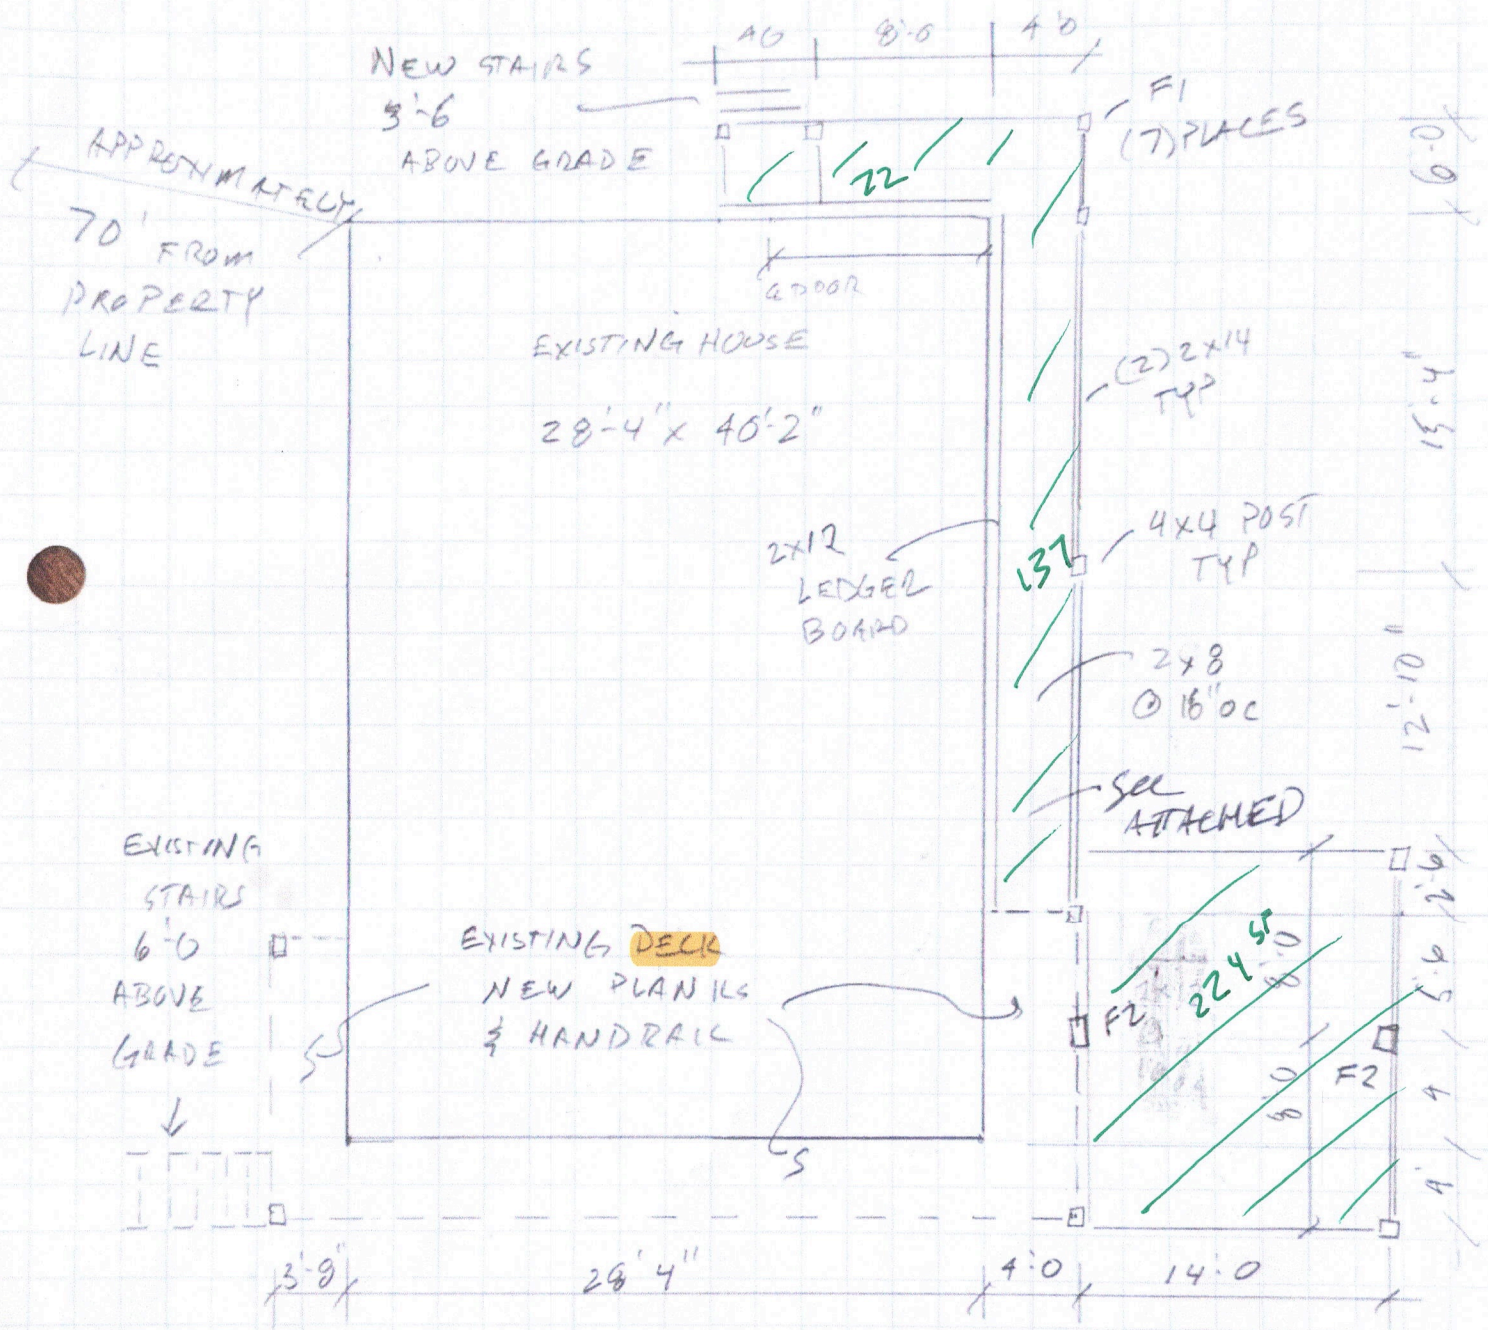 NEW STAIRS
3'-6
ABOVE GRADE
8'-0
4'0
F1
(7) PLACES
6'-0
APPROXIMATELY
70' FROM
PROPERTY
LINE
22
DOOR
EXISTING HOUSE
28'-4" x 40'-2"
(2) 2x14
TYP
15'-4"
2x12
LEDGER
BOARD
137
4x4 POST
TYP
2x8
@ 16" OC
12'-10"
SEE
ATTACHED
2'-6
EXISTING
STAIRS
6'-0
ABOVE
GRADE
EXISTING DECK
NEW PLANKS
& HANDRAIL
F2
224 SF
8'-0
5'-6
F2
8'0
4
4'
3'-8"
28'4"
4'-0
14'-0